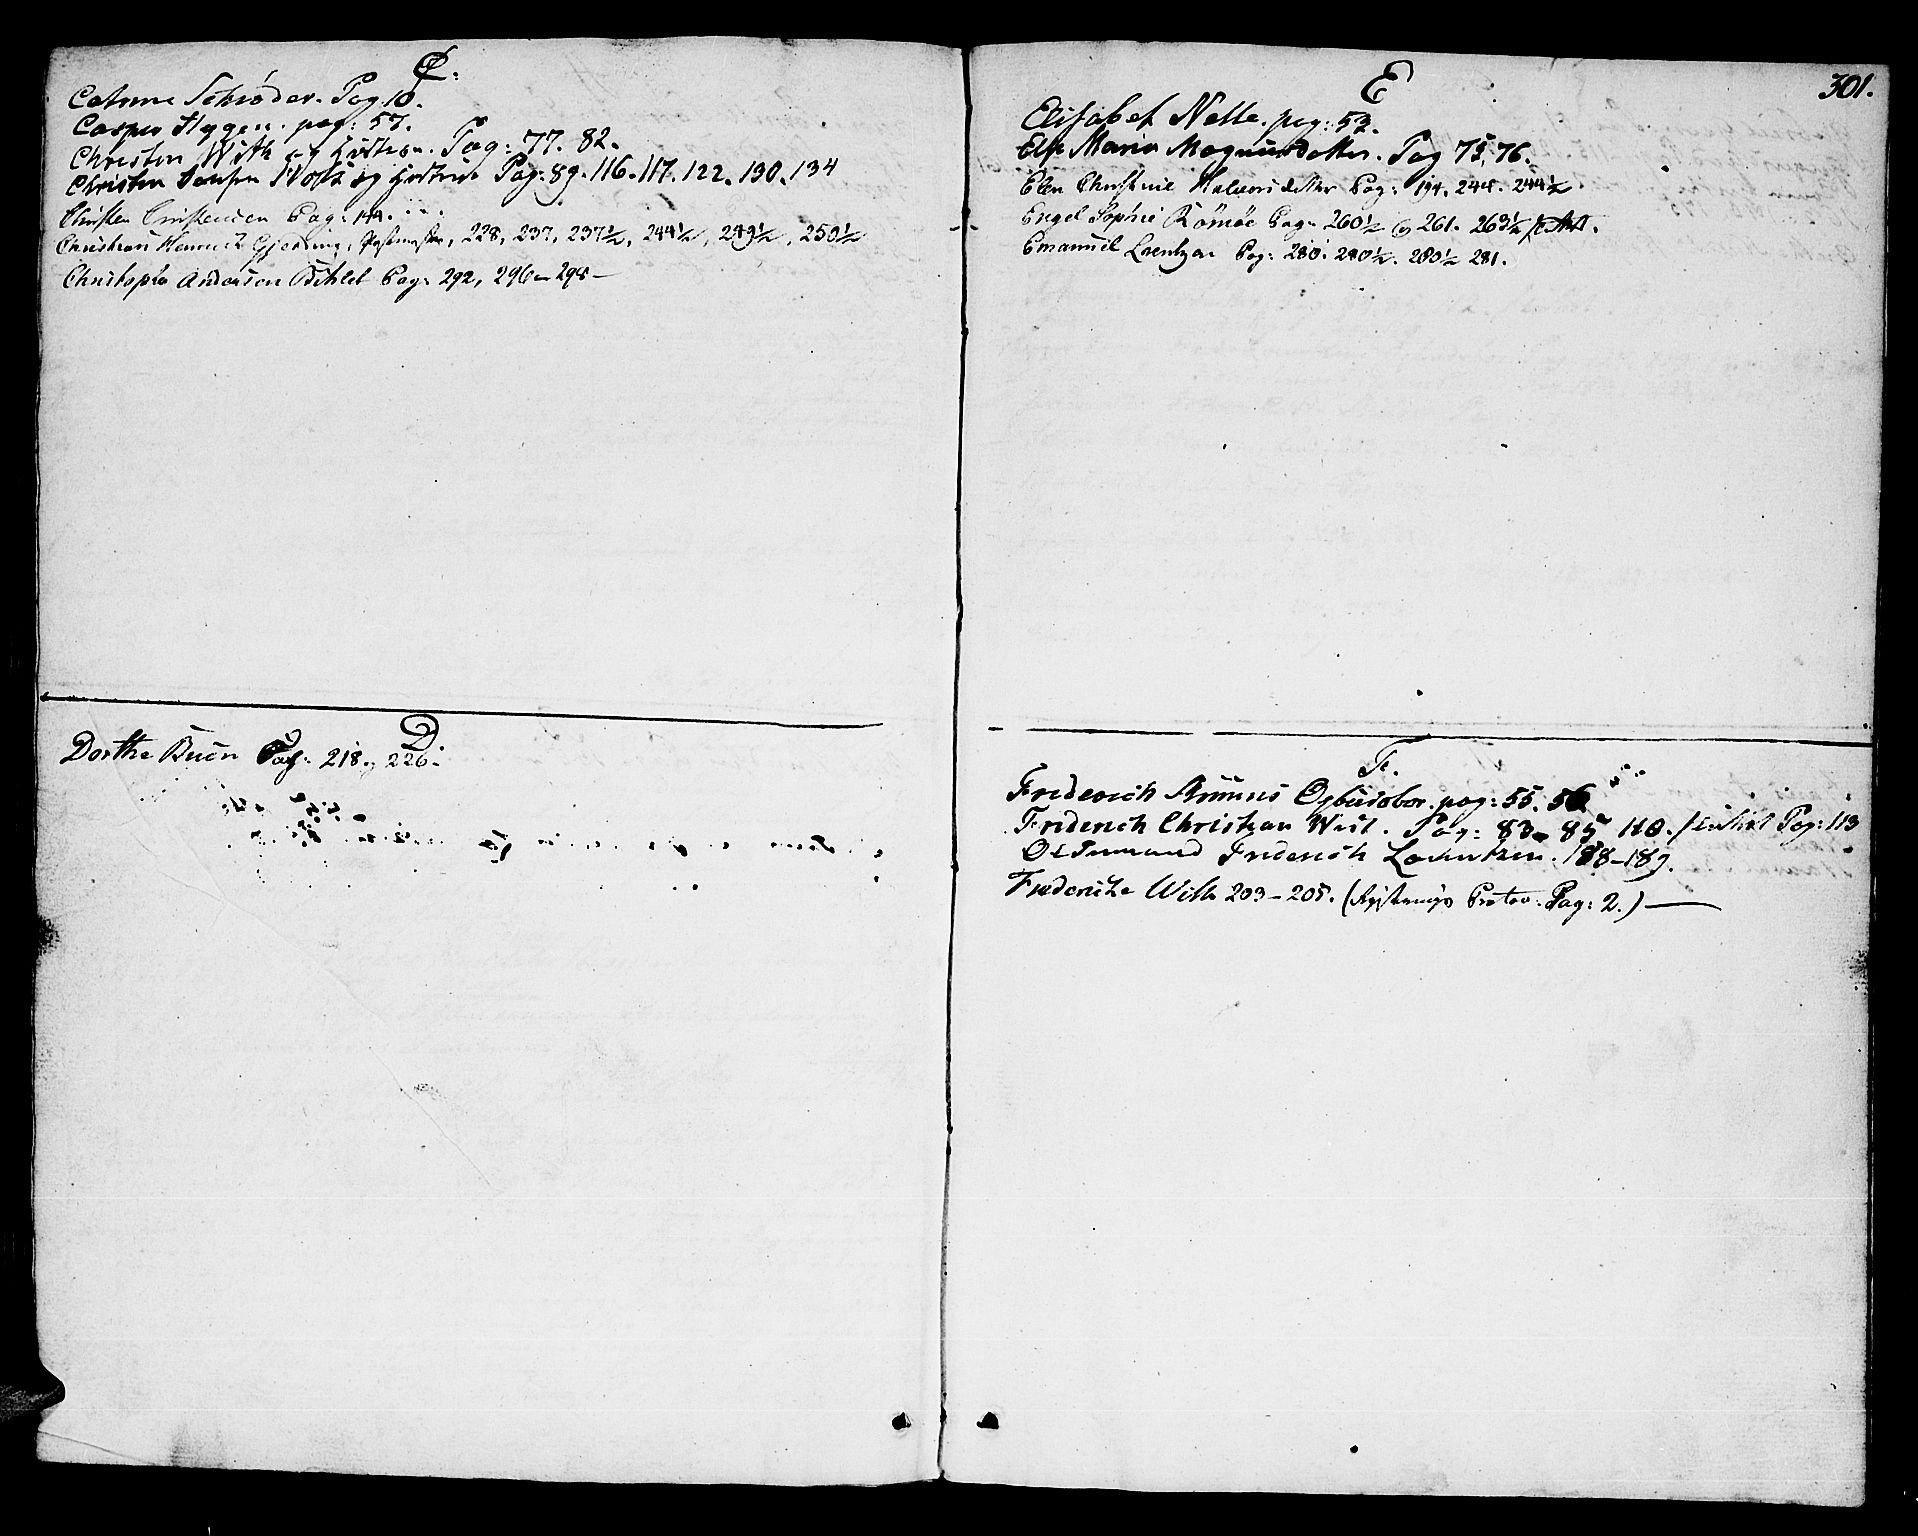 C.
Catrine Schrøder. Pag 10.
Casper Hygen. pag: 57.
Christen With og Hustrue. Pag: 77. 82.
Christen Jensen Holst og Hustrue Pag: 89. 116. 117. 122. 130. 134
Christen Christensen Pag: 144.
Christian Henrich Gjerning, Postmester, 228, 237, 237½, 244½, 249½, 250½
Christopher Andersen Bihlet Pag: 292, 296 - 298 -
D.
Dorthe Buën Pag: 218. 226.
301.
E
Elisabet Nelle. pag: 53.
Else Maria Magnusdatter. Pag 75. 76.
Elen Christine Halvorsdatter Pag: 194. 244. 244½
Engel Sophie Römöe Pag: 260½ 261. 263½
Emanuel Lorentzen Pag: 280. 280½. 280½ 281.
F.
Friderich pag: 55. 56
Friderich Christian West. Pag: 83 - 85 110. Pag: 113
Friderich Lorentzen. 188-189.
Frideriche With 203 - 205. (Protoc. Pag: 2.)